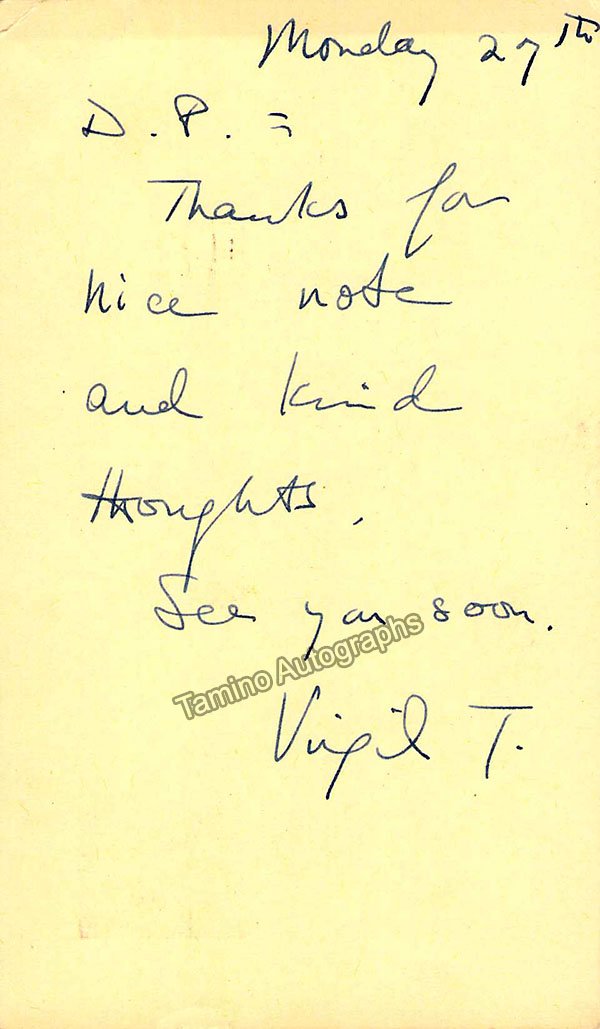 Monday 27th
D. P. =
Thanks for
nice note
and kind
thoughts.
See you soon.
Tamino Autographs
Virgil T.